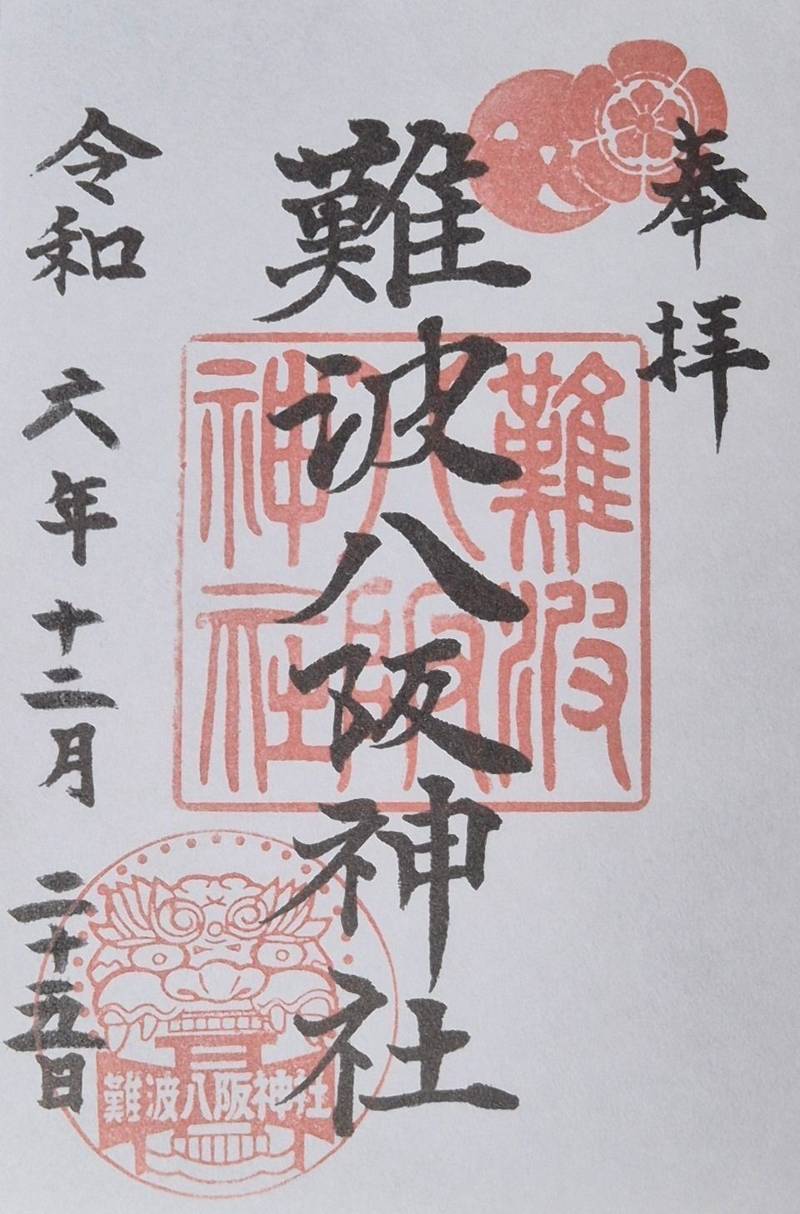 奉拝
難波八阪神社
難波
八阪
神社
難波八阪神社
令和六年十二月二十五日